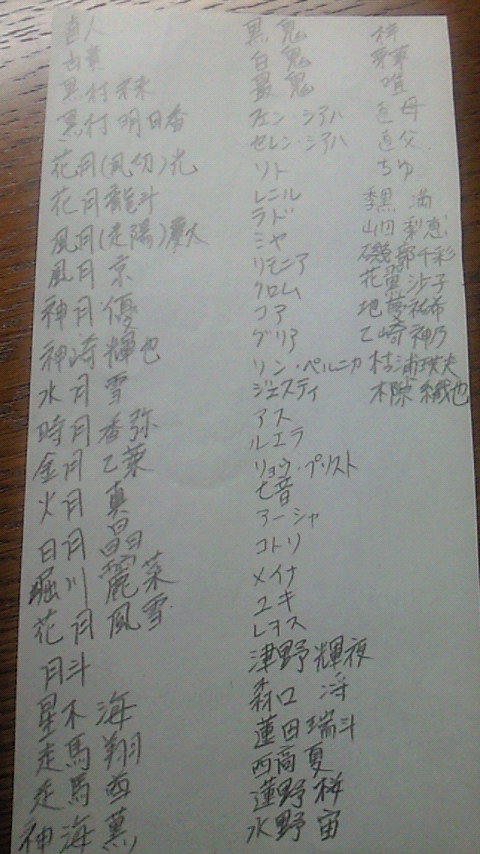 直人
黒村 未来
黒村 明日香
花月(風切)光
花月 龍斗
風月(走陽)慶火
風月 京
神月 優
神崎 輝也
水月 雪
時月 香弥
金月 乙葉
火月 真
日月 晶
堀川 麗菜
花月 風雪
月斗
星木 海
走馬 翔
走馬 西
神海 薫
黒鬼
白鬼
最鬼
フェン・シアハ
セレン・シアハ
リト
レニル
ラド
ミヤ
リモニア
クロム
コア
グリア
リン・ペルニカ
ジェスティ
アス
ルエラ
リョウ・プリスト
七音
アーシャ
コトリ
メイナ
ユキ
レオス
津野 輝夜
森口 冴
蓮田 瑞斗
西商 夏
蓮野 桜
水野 宙
梓
唯
直母
直父
ちゆ
季黒 満
山口 梨恵
磯部 千彩
花黒 沙子
地夢 祐希
乙崎 神乃
村浦 瑛太
木隙 織也